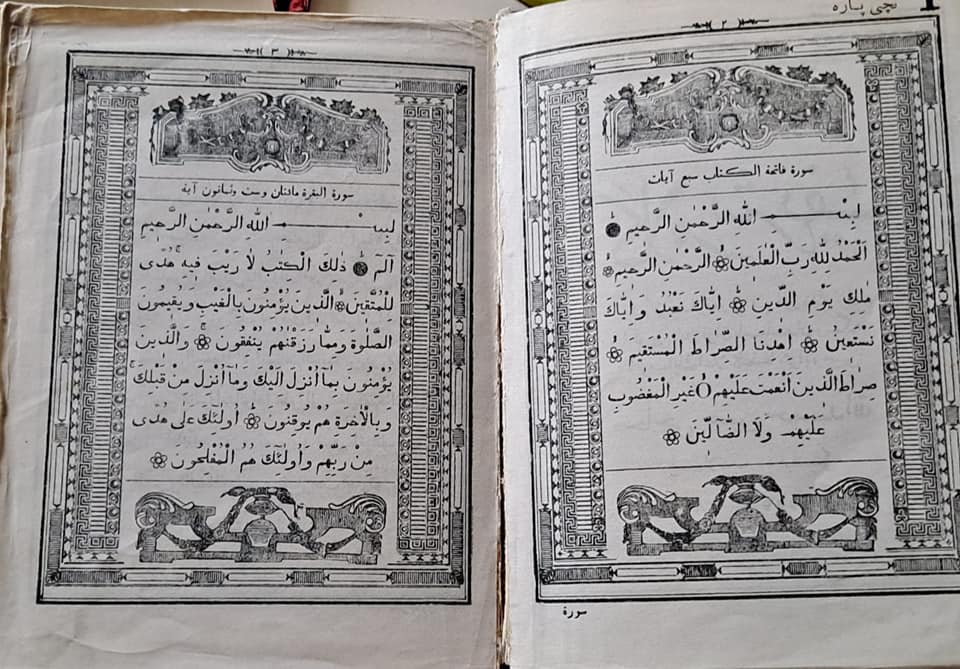 1 نچی پاره
٢
سورة فاتحة الكتاب سبع آيات
بِسْمِ اللّٰهِ الرَّحْمٰنِ الرَّحِيمِ
اَلْحَمْدُ لِلّٰهِ رَبِّ الْعٰلَمِينَ الرَّحْمٰنِ الرَّحِيمِ
مٰلِكِ يَوْمِ الدِّينِ اِيَّاكَ نَعْبُدُ وَاِيَّاكَ
نَسْتَعِينُ اِهْدِنَا الصِّرَاطَ الْمُسْتَقِيمَ
صِرَاطَ الَّذِينَ اَنْعَمْتَ عَلَيْهِمْ غَيْرِ الْمَغْضُوبِ
عَلَيْهِمْ وَلَا الضَّٓالِّينَ
سورة
٣
سورة البقرة مائتان وست وثمانون آية
بِسْمِ اللّٰهِ الرَّحْمٰنِ الرَّحِيمِ
الٓمٓ ذٰلِكَ الْكِتٰبُ لَا رَيْبَ فِيهِ هُدًى
لِلْمُتَّقِينَ الَّذِينَ يُؤْمِنُونَ بِالْغَيْبِ وَيُقِيمُونَ
الصَّلٰوةَ وَمِمَّا رَزَقْنٰهُمْ يُنْفِقُونَ وَالَّذِينَ
يُؤْمِنُونَ بِمَٓا اُنْزِلَ اِلَيْكَ وَمَٓا اُنْزِلَ مِنْ قَبْلِكَ
وَبِالْاٰخِرَةِ هُمْ يُوقِنُونَ اُولٰٓئِكَ عَلٰى هُدًى
مِنْ رَبِّهِمْ وَاُولٰٓئِكَ هُمُ الْمُفْلِحُونَ